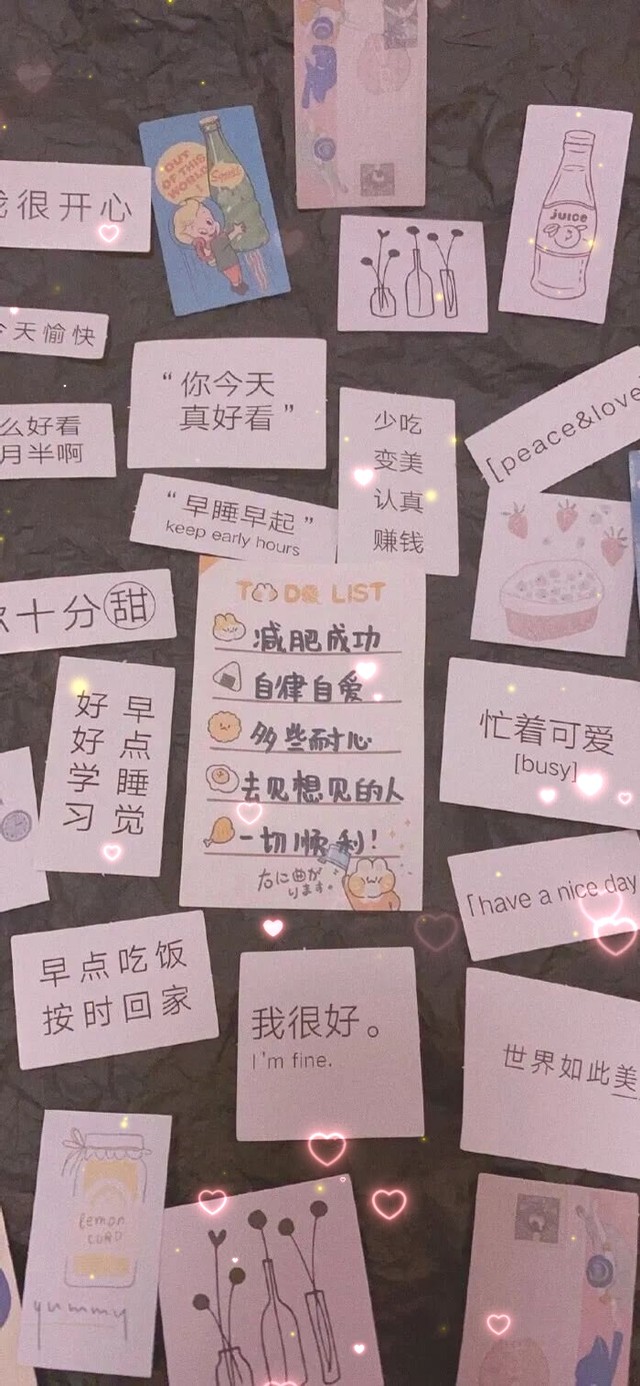 OUT
OF THIS
WORLD
JUICE
我很开心
今天愉快
“你今天
真好看”
少吃
变美
认真
赚钱
[peace&love
么好看
月半啊
“早睡早起”
keep early hours
TO DO LIST
减肥成功
自律自爱
多些耐心
去见想见的人
一切顺利！
右に曲が
ります。
十分甜
早点睡觉
好好学习
忙着可爱
[busy]
[have a nice day
早点吃饭
按时回家
我很好。
I'm fine.
世界如此美
lemon
CURD
yummy